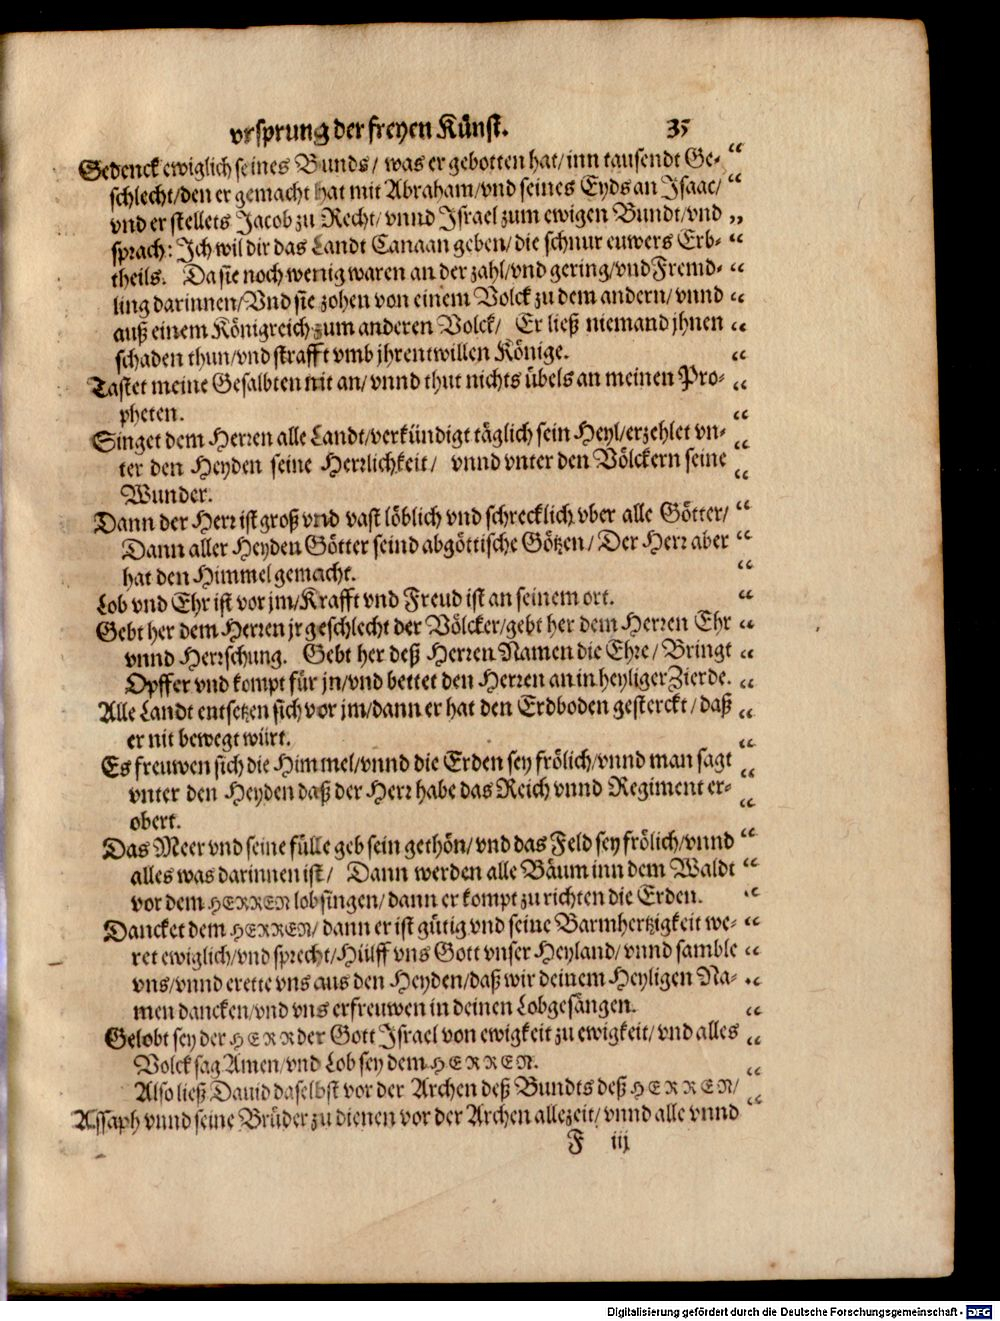 vrsprung der freyen Künst. 35
Gedenck ewiglich seines Bunds/ was er gebotten hat/ inn tausendt Ge- “
schlecht/ den er gemacht hat mit Abraham/ vnd seines Eyds an Isaac/ “
vnd er stellets Jacob zu Recht/ vnnd Israel zum ewigen Bundt/ vnd „
sprach: Ich wil dir das Landt Canaan geben/ die schnur euwers Erb- “
theils. Da sie noch wenig waren an der zahl/ vnd gering/ vnd Fremd- “
ling darinnen/ Vnd sie zohen von einem Volck zu dem andern/ vnnd “
auß einem Königreich zum anderen Volck/ Er ließ niemand jhnen “
schaden thun/ vnd strafft vmb jhrent willen Könige. “
Tastet meine Gesalbten nit an/ vnnd thut nichts übels an meinen Pro- “
pheten. “
Singet dem Herren alle Landt/ verkündigt täglich sein Heyl/ erzehlet vn- “
ter den Heyden seine Herrlichkeit/ vnnd vnter den Völckern seine “
Wunder. “
Dann der Herr ist groß vnd vast löblich vnd schrecklich vber alle Götter/ “
Dann aller Heyden Götter seind abgöttische Götzen/ Der Herr aber “
hat den Himmel gemacht. “
Lob vnd Ehr ist vor jm/ Krafft vnd Freud ist an seinem ort. “
Gebt her dem Herren jr geschlecht der Völcker/ gebt her dem Herren Ehr “
vnnd Herrschung. Gebt her deß Herren Namen die Ehre/ Bringt “
Opffer vnd kompt für jn/ vnd bettet den Herren an in heyliger Zierde. “
Alle Landt entsetzen sich vor jm/ dann er hat den Erdboden gesterckt/ daß “
er nit bewegt würt. “
Es freuwen sich die Himmel/ vnnd die Erden sey frölich/ vnnd man sagt “
vnter den Heyden daß der Herr habe das Reich vnnd Regiment er- “
obert.
Das Meer vnd seine fülle geb sein gethön/ vnd das Feld sey frölich/ vnnd “
alles was darinnen ist/ Dann werden alle Bäum inn dem Waldt “
vor dem HERREN lobsingen/ dann er kompt zu richten die Erden. “
Dancket dem HERREN/ dann er ist gütig vnd seine Barmhertzigkeit we- “
ret ewiglich/ vnd sprecht/ Hülff vns Gott vnser Heyland/ vnnd samble “
vns/ vnnd erette vns aus den Heyden/ daß wir deinem Heyligen Na- “
men dancken/ vnd vns erfreuwen in deinen Lobgesängen. “
Gelobt sey der HERR der Gott Israel von ewigkeit zu ewigkeit/ vnd alles “
Volck sag Amen/ vnd Lob sey dem HERREN. “
Also ließ Dauid daselbst vor der Archen deß Bundts deß HERREN/ “
Assaph vnnd seine Brüder zu dienen vor der Archen allezeit/ vnnd alle vnnd
F iij
Digitalisierung gefördert durch die Deutsche Forschungsgemeinschaft - DFG